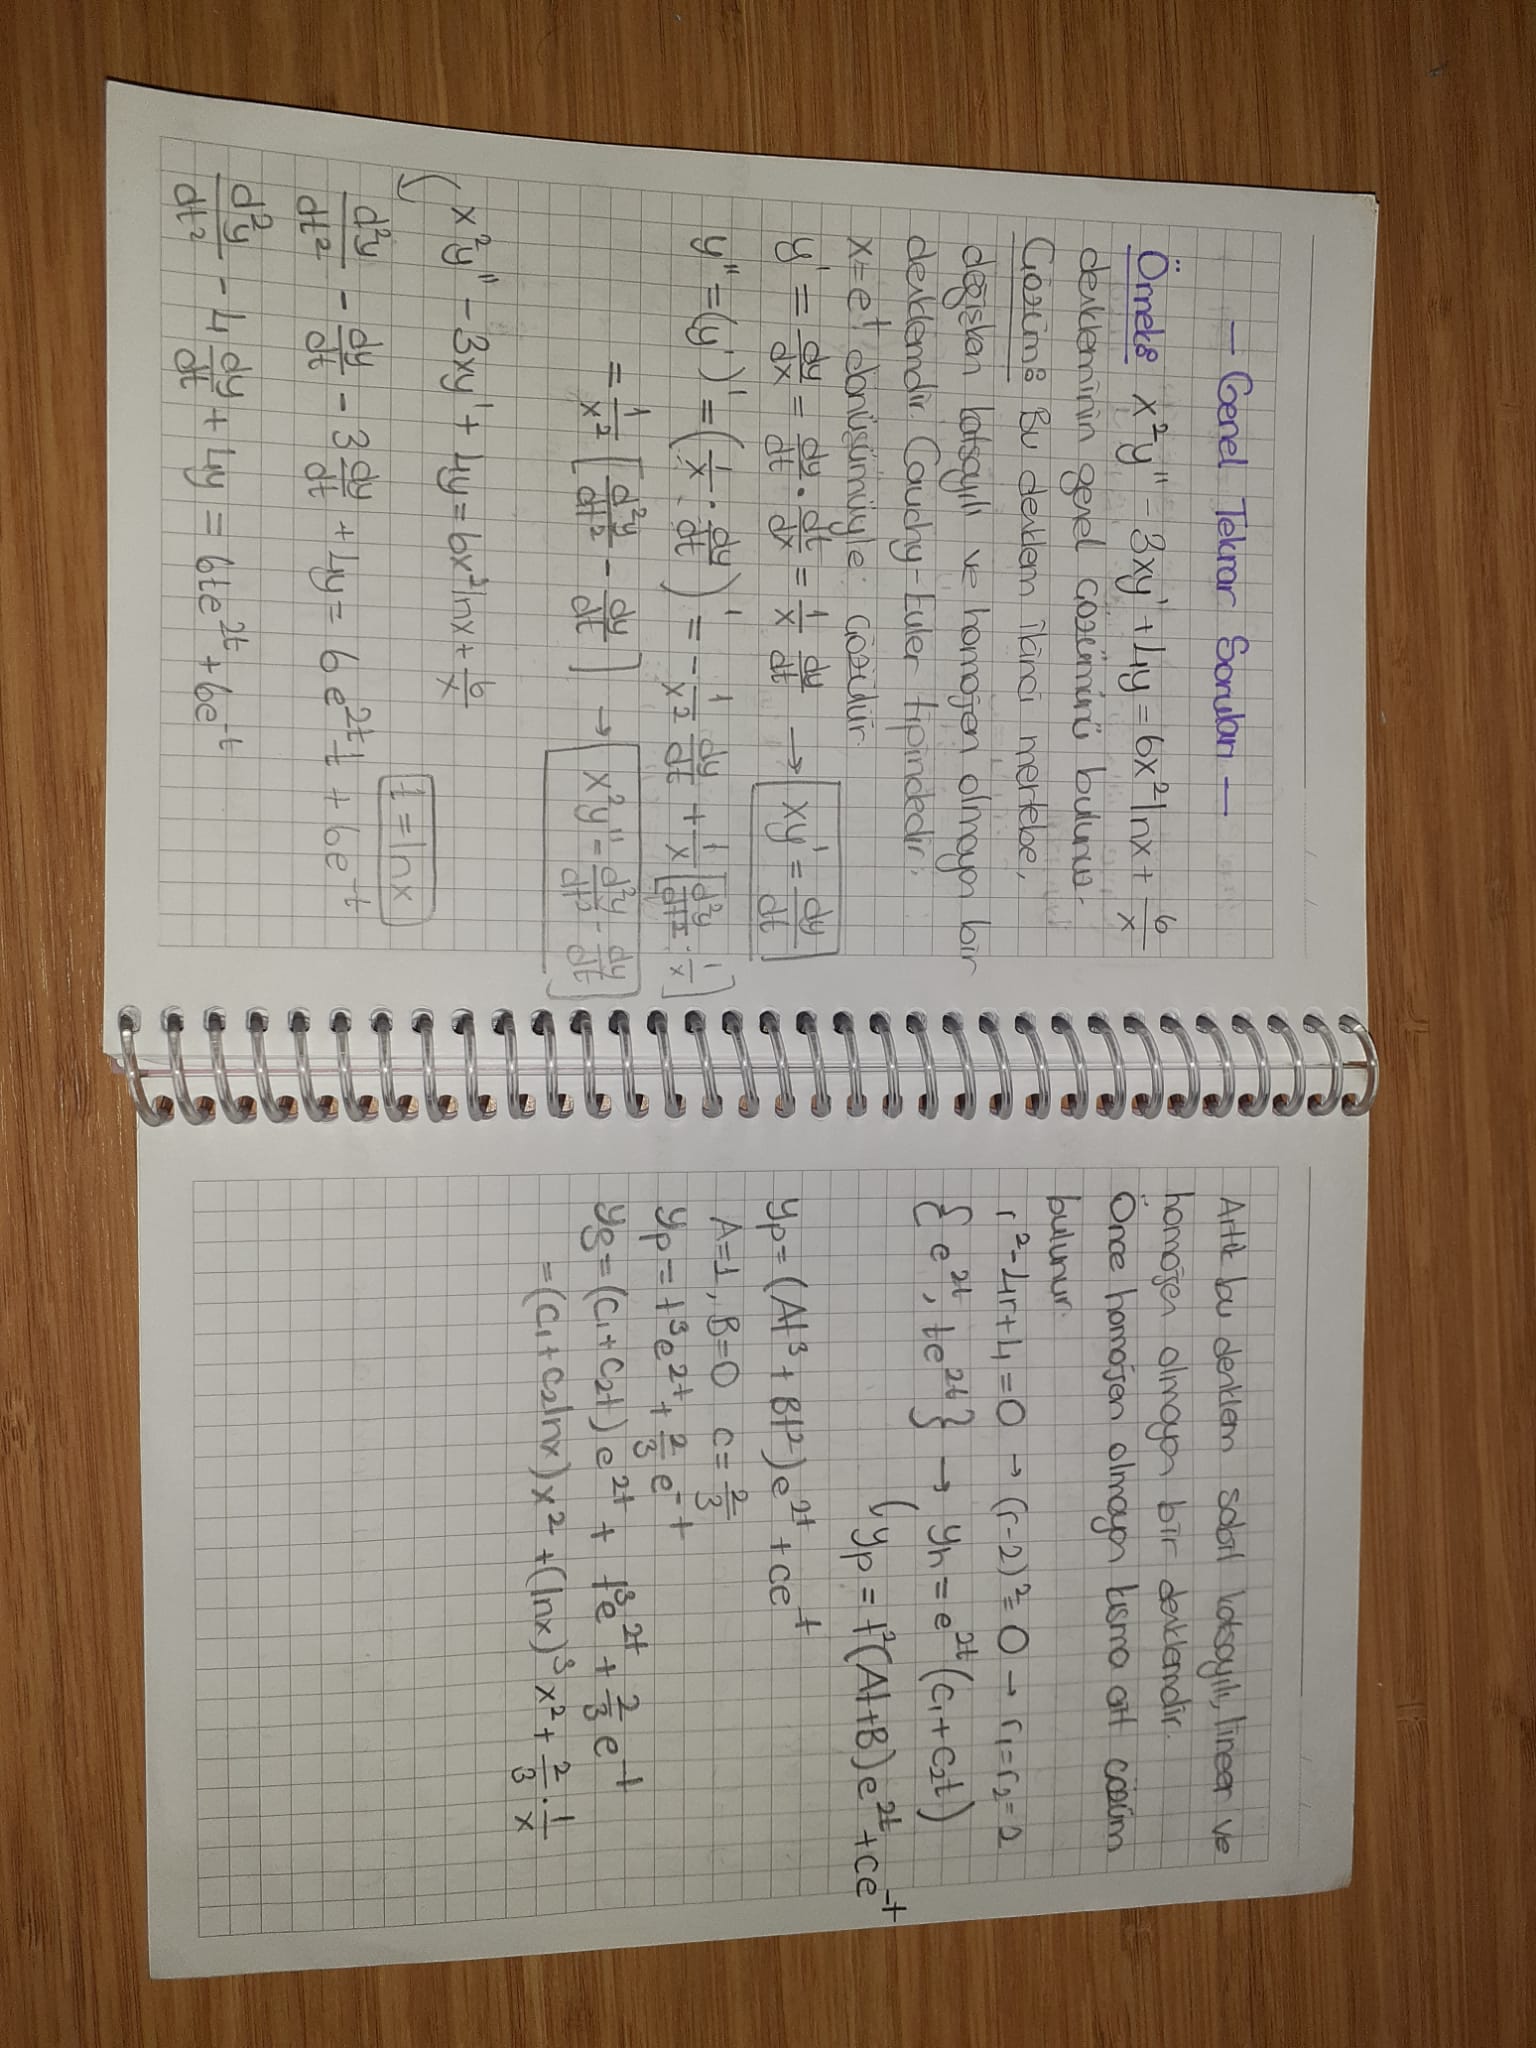 - Genel Tekrar Soruları -
Örnek: x²y'' - 3xy' + 4y = 6x²lnx + 6/x
denkleminin genel çözümünü bulunuz.
Çözüm: Bu denklem ikinci mertebe,
değişken katsayılı ve homojen olmayan bir
denklemdir. Cauchy-Euler tipindedir.
x = e^t dönüşümüyle çözülür.
y' = dy/dx = dy/dt · dt/dx = 1/x dy/dt → xy' = dy/dt
y'' = (y')' = (1/x · dy/dt)' = -1/x² dy/dt + 1/x [d²y/dt² · 1/x]
= 1/x² [d²y/dt² - dy/dt] → x²y'' = d²y/dt² - dy/dt
x²y'' - 3xy' + 4y = 6x²lnx + 6/x
t = lnx
d²y/dt² - dy/dt - 3 dy/dt + 4y = 6e^2t t + 6e^-t
d²y/dt² - 4 dy/dt + 4y = 6te^2t + 6e^-t
Artık bu denklem sabit katsayılı, lineer ve
homojen olmayan bir denklemdir.
Önce homojen olmayan kısma ait çözüm
bulunur.
r² - 4r + 4 = 0 → (r-2)² = 0 → r₁ = r₂ = 2
{e^2t, te^2t} → yh = e^2t (c₁ + c₂t)
yp = t²(At+B)e^2t + ce^-t
yp = (At³ + Bt²)e^2t + ce^-t
A=1, B=0 c = 2/3
yp = t³e^2t + 2/3 e^-t
yg = (c₁ + c₂t) e^2t + t³e^2t + 2/3 e^-t
= (c₁ + c₂lnx) x² + (lnx)³ x² + 2/3 · 1/x